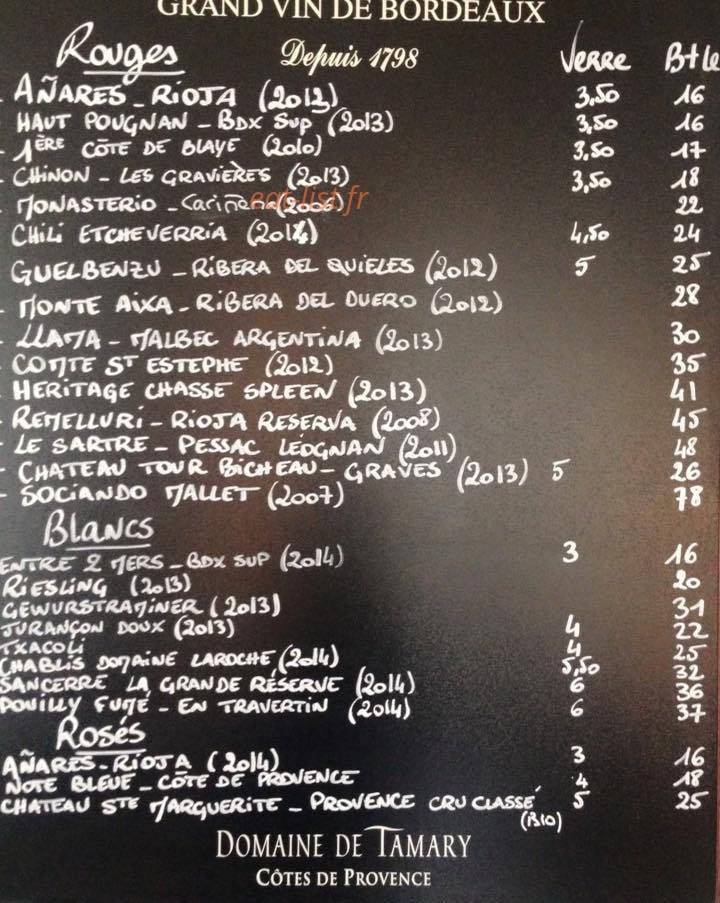 GRAND VIN DE BORDEAUX
Rouges Depuis 1798 Verre Btle
- AÑARES - RIOJA (2012) 3,50 16
- HAUT POUGNAN - BDX SUP (2013) 3,50 16
- 1ÈRE CÔTE DE BLAYE (2010) 3,50 17
- CHINON - LES GRAVIÈRES (2013) 3,50 18
- MONASTERIO - Cariñena (2006) 22
eat-list.fr
CHILI ETCHEVERRIA (2014) 4,50 24
GUELBENZU - RIBERA DEL QUIELES (2012) 5 25
- MONTE AIXA - RIBERA DEL DUERO (2012) 28
- LLAMA - MALBEC ARGENTINA (2013) 30
- COMTE ST ESTEPHE (2012) 35
- HERITAGE CHASSE SPLEEN (2013) 41
- REMELLURI - RIOJA RESERVA (2008) 45
- LE SARTRE - PESSAC LÉOGNAN (2011) 48
- CHATEAU TOUR BICHEAU - GRAVES (2013) 5 26
- SOCIANDO MALLET (2007) 78
BLANCS
ENTRE 2 MERS - BDX SUP (2014) 3 16
RIESLING (2013) 20
GEWURSTRAMINER (2013) 31
JURANÇON DOUX (2013) 4 22
TXACOLI 4 25
CHABLIS DOMAINE LAROCHE (2014) 5,50 32
SANCERRE LA GRANDE RÉSERVE (2014) 6 36
POUILLY FUMÉ - EN TRAVERTIN (2014) 6 37
ROSÉS
AÑARES - RIOJA (2014) 3 16
NOTE BLEUE - CÔTE DE PROVENCE 4 18
CHATEAU STE MARGUERITE - PROVENCE CRU CLASSÉ 5 25
(BIO)
DOMAINE DE TAMARY
CÔTES DE PROVENCE